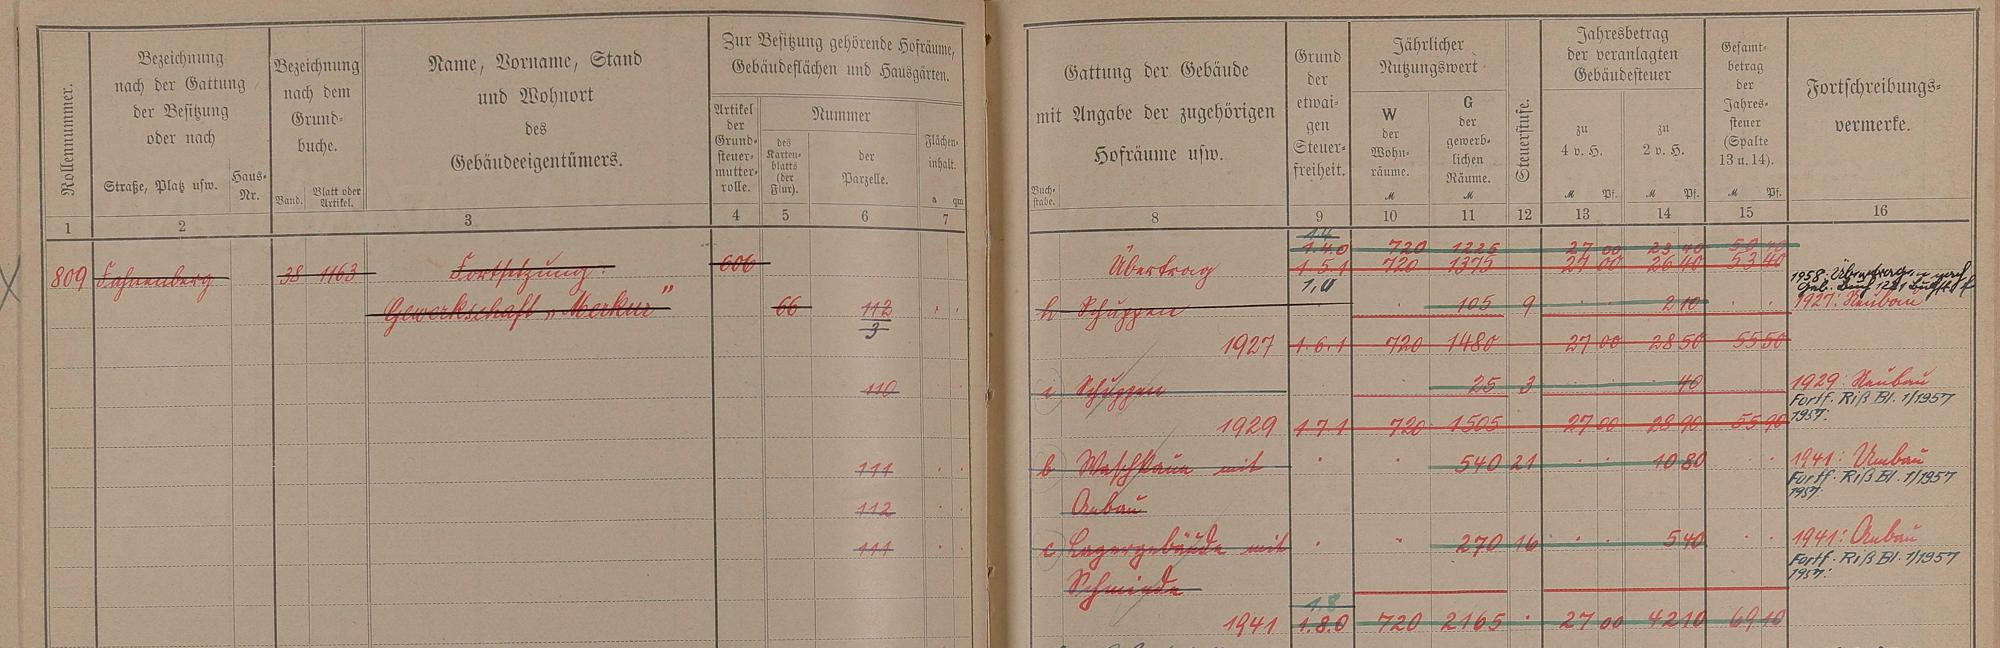 Rollennummer.
Bezeichnung
nach der Gattung
der Besitzung
oder nach
Straße, Platz usw.
Haus-
Nr.
Bezeichnung
nach dem
Grund-
buche.
Band.
Blatt oder
Artikel.
Name, Vorname, Stand
und Wohnort
des
Gebäudeeigentümers.
Zur Besitzung gehörende Hofräume,
Gebäudeflächen und Hausgärten.
Artikel
der
Grund-
steuer-
mutter-
rolle.
Nummer
des
Karten-
blatts
(der
Flur).
der
Parzelle.
Flächen-
inhalt.
a qm
1 2 3 4 5 6 7
809 Fahrenberg 38 1163 Fortsetzung: 606
Gewerkschaft „Merkur" 66 112
3
110
111
112
111
Gattung der Gebäude
mit Angabe der zugehörigen
Hofräume usw.
Buch-
stabe.
Grund
der
etwai-
gen
Steuer-
freiheit.
Jährlicher
Nutzungswert
W
der
Wohn-
räume.
M
G
der
gewerb-
lichen
Räume.
M
Steuerstufe.
Jahresbetrag
der veranlagten
Gebäudesteuer
zu
4 v. H.
M Pf.
zu
2 v. H.
M Pf.
Gesamt-
betrag
der
Jahres-
steuer
(Spalte
13 u. 14).
M Pf.
Fortschreibungs-
vermerke.
8 9 10 11 12 13 14 15 16
1.4
1.4.0 720 1225 27 00 23 40 50 40
Übertrag 1.5.1 720 1375 27 00 26 40 53 40
1,0
1958: Übertragen nach
h Schuppen 105 9 2 10 1927: Neubau
1927 1.6.1 720 1480 27 00 28 50 55 50
i Schuppen 25 3 40 1929: Neubau
Fortf. Riß Bl. 1/1957
1957:
1929 1.7.1 720 1505 27 00 28 90 55 90
b Waschkaue mit 540 21 10 80 1941: Umbau
Fortf. Riß Bl. 1/1957
1957:
Anbau
c Lagergebäude mit 270 16 5 40 1941: Anbau
Fortf. Riß Bl. 1/1957
1957:
Schmiede
1.8
1941 1.8.0 720 2165 27 00 42 10 69 10